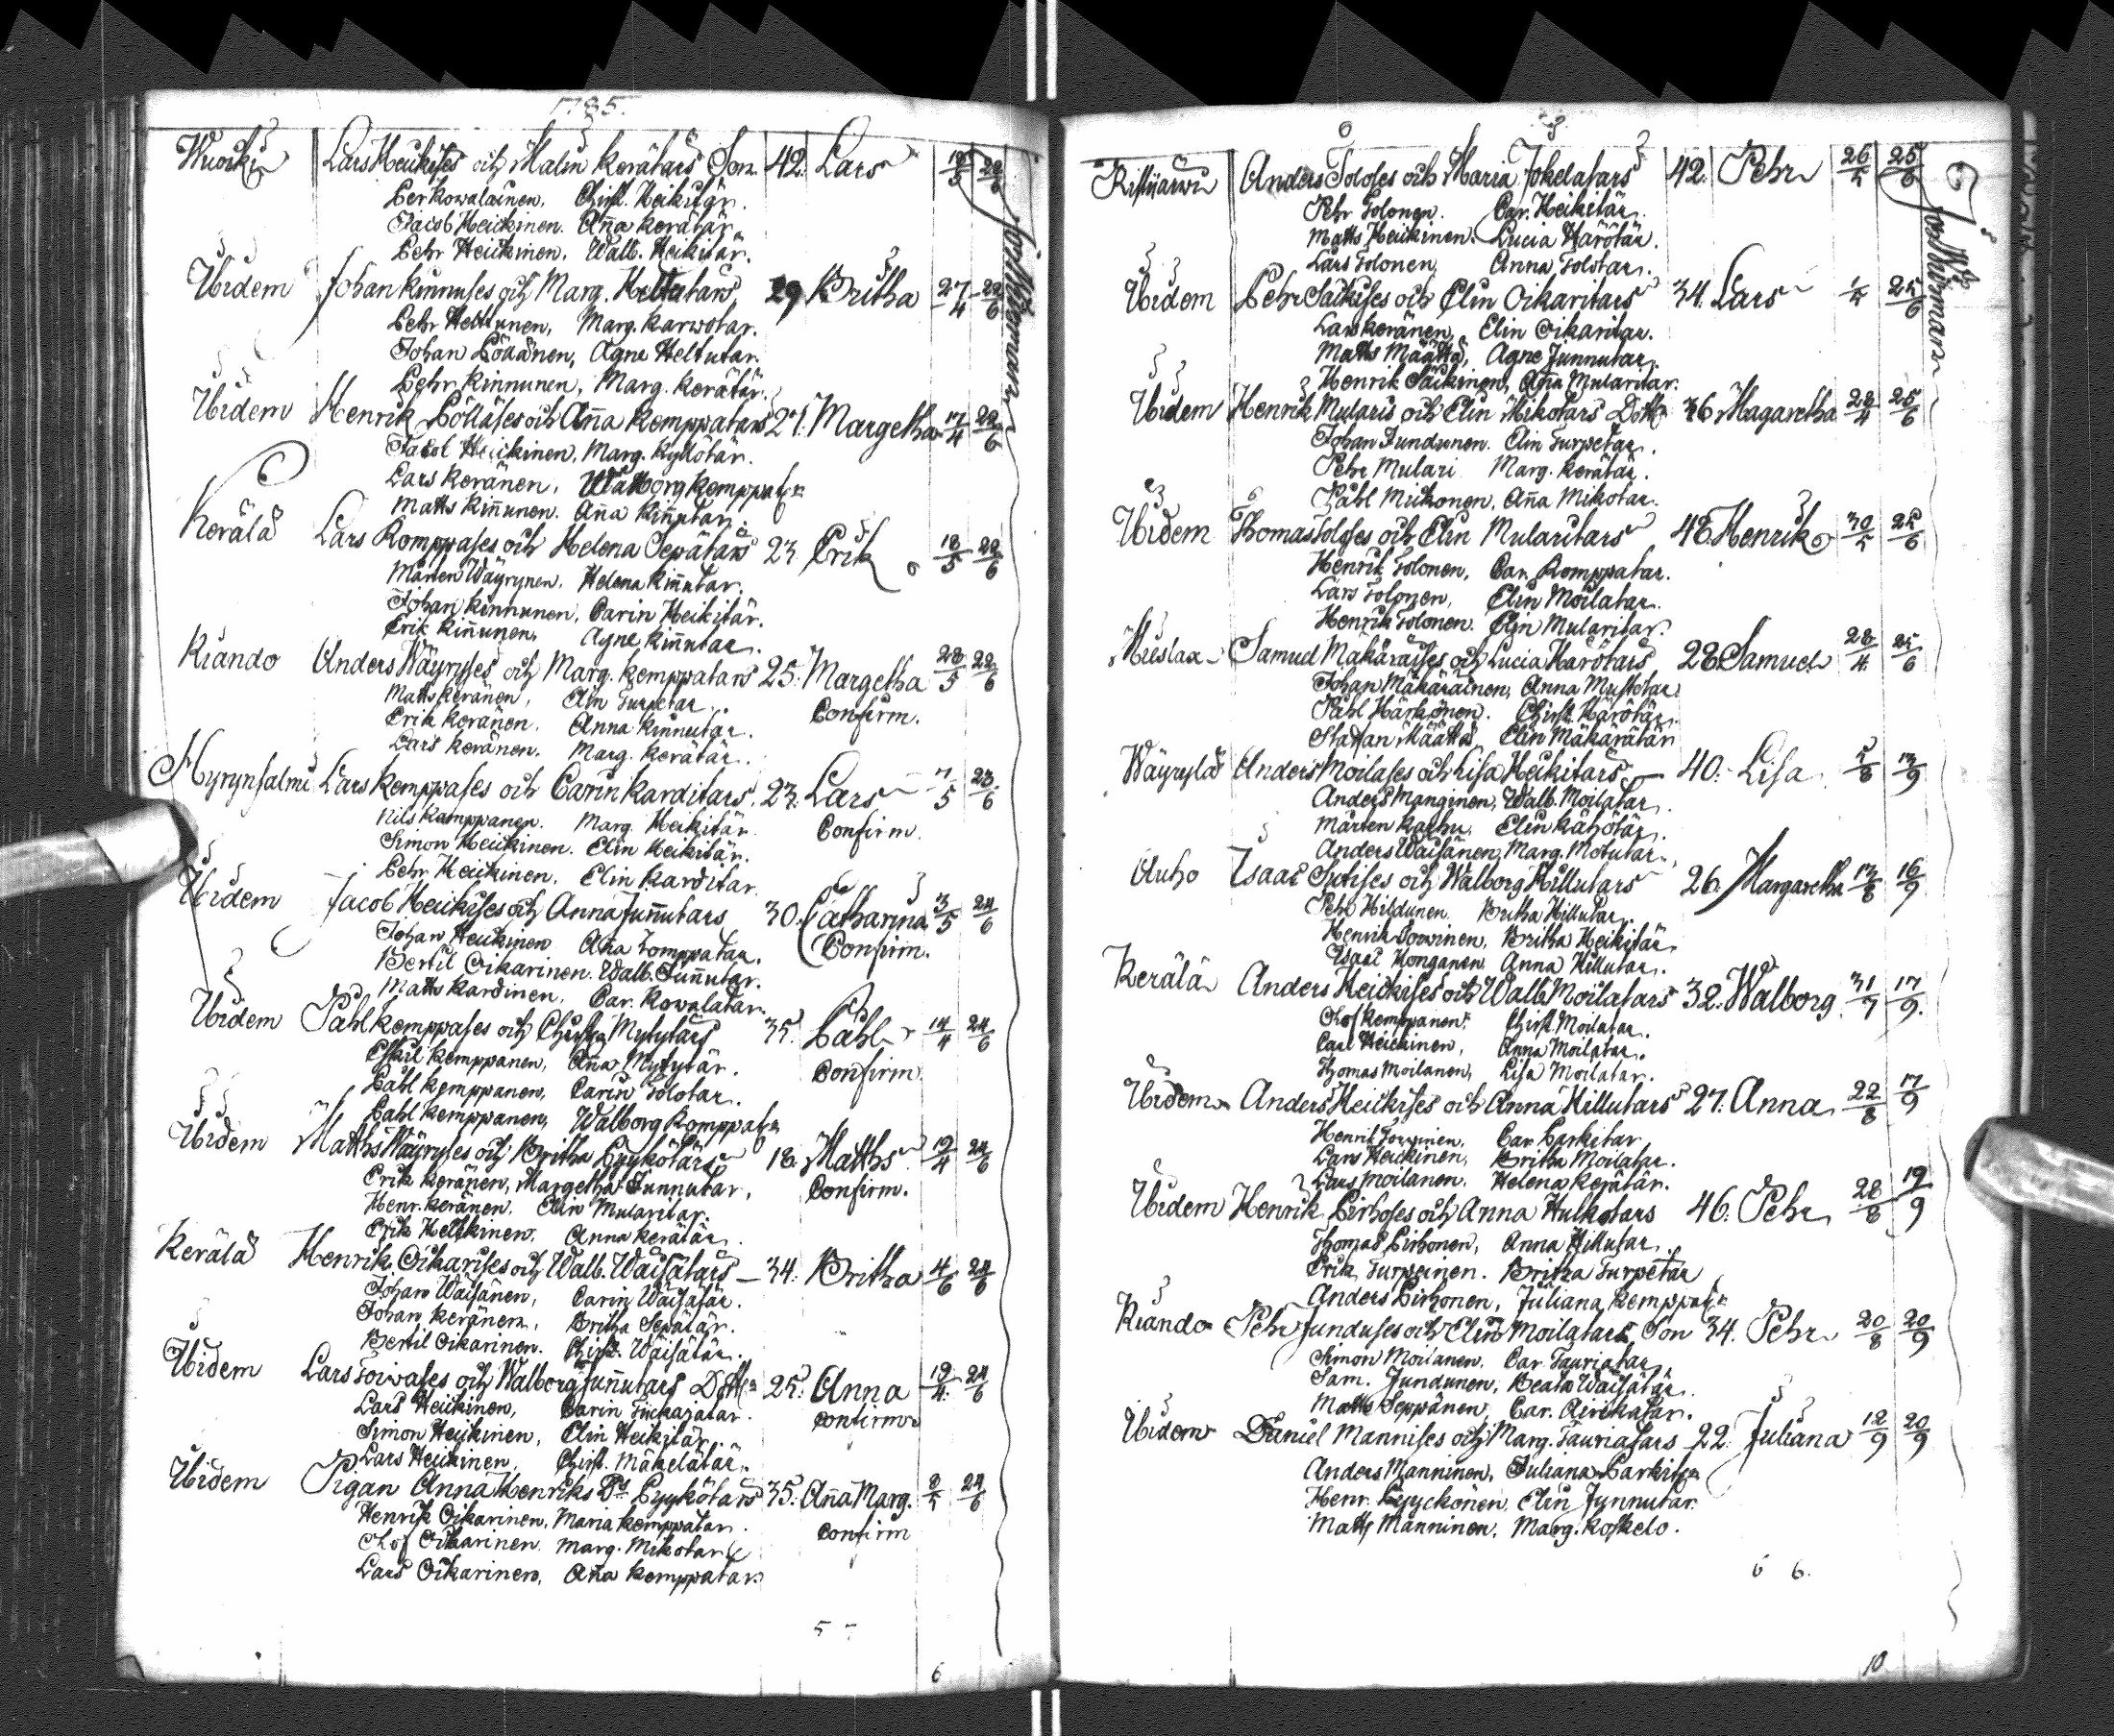 1785.
Wuocki Lars Heickises och Malin Kerätärs Son. 42. Lars 19/5 22/6
Per Kowalainen, Christ. Heikitär.
Jacob Heickinen. Aña Kerätär.
Pehr Heickinen. Walb. Heikitär.
Ibidem Johan Kinnuses och Marg. Heltutars 29 Britha 27/4 22/6
Pehr Helttunen, Marg. Karwotar.
Johan Pöllänen, Agne Heltutar.
Pehr Kinnunen, Marg. Kerätär.
Ibidem Henrik Pölläses och Aña Kemppatars 27. Margetha 17/4 22/6
Jacob Heickinen, Marg. Kyllötär.
Lars Keränen, Walborg Kemppatar
Matts Kiñunen. Aña Kiñutar.
Kerälä Lars Komppases och Helena Sepätärs 23. Erik 18/5 22/6
Mårten Wäyrynen, Helena Kiñutar.
Johan Kinnunen, Carin Heikitär.
Erik Kiñunen, Agne Kiñutar.
Kiando Anders Wäyryses och Marg. Kemppatars 25. Margetha 28/5 22/6
Matts Keränen, Elin Turpetar. Confirm.
Erik Keränen. Anna Kinnutar.
Lars Keränen. Marg. Kerätär.
Hyrynsalmi Lars Kemppases och Carin Karditars. 23. Lars 7/5 23/6
Nils Kemppanen. Marg. Heikitär. Confirm.
Simon Heickinen. Elin Heikitär.
Pehr Heickinen. Elin Karditar.
Ibidem Jacob Heickises och Anna Juñutars 30. Catharina 3/5 24/6
Johan Heickinen Aña Komppatar. Confirm.
Bertil Oikarinen. Walb. Juñutar.
Matts Kardinen, Car. Kowalatar.
Ibidem Påhl Kemppases och Christ. Mytytärs 35. Påhl 14/4 24/6
Eskil Kemppanen, Aña Mytytär. Confirm.
Påhl Kemppanen, Carin Tolotar.
Påhl Kemppanen, Walborg Komppatar
Ibidem Matths Wäyryses och Britha Pyykötärs 18. Matths 19/4 24/6
Erik Keränen, Margetha Junnutar. Confirm.
Henr. Keränen. Elin Mularitar.
Erik Heickinen. Anna Kerätär.
Kerälä Henrik Oikarises och Walb. Wäisätärs 34. Britha 4/6 24/6
Johan Wäisänen, Carin Wäisätär.
Johan Keränen, Britha Sepätär.
Bertil Oikarinen. Christ. Wäisätär.
Ibidem Lars Toiwases och Walborg Juñutars Dotter 25. Anna 19/4 24/6
Lars Heickinen, Carin Tuckajatar. Confirm
Simon Heickinen, Elin Heikitär.
Lars Heickinen, Christ. Mäkelätär.
Ibidem Pigan Anna Henriks Dr Pyykötärs 35. Aña Marg. 8/5 24/6
Henrik Oikarinen, Maria Kemppatar. Confirm
Olof Oikarinen. Marg. Mikotar
Lars Oikarinen, Aña Kemppatar.
5
6
Ristijärwi Anders Toloses och Maria Jokelatars 42. Pehr 26/5 25/6
Pehr Tolonen. Car. Heikitär.
Matts Heickinen. Lucia Härötär.
Lars Tolonen, Anna Tolotar.
Ibidem Pehr Säikises och Elin Oikaritars 34. Lars 1/5 25/6
Lars Keränen, Elin Oikaritar.
Matts Määttä, Agne Junnutar.
Henrik Säikinen, Aña Mularitar.
Ibidem Henrik Mularis och Elin Mikotars Dotter 36 Magaretha 28/4 25/6
Johan Jundunen. Elin Turpetar.
Pehr Mulari Marg. Kerätär.
Påhl Mickonen. Aña Mikotar.
Ibidem Thomas Toloses och Elin Mularitars 48 Henrik 30/5 25/6
Henrik Tolonen, Car. Komppatar.
Lars Tolonen, Elin Moilatar.
Henrik Tolonen. Elin Mularitar.
Mieslax Samuel Mäkäräises och Lucia Härötärs 28 Samuel 28/4 25/6
Johan Mäkäräinen, Anna Mustotar
Påhl Härkönen. Christ. Härötär.
Staffan Määttä Elin Mäkärätär
Wäyrylä Anders Moilases och Lisa Heikitärs 40. Lisa 5/8 13/9
Anders Manginen, Walb. Moilatar.
Mårten Karhu. Elin Kähötär.
Anders Wäisänen, Marg. Motutar.
Auho Isaac Sutises och Walborg Hillutars 26. Margaretha 17/8 16/9
Pehr Hildunen. Britha Hillutar.
Henrik Torwinen, Britha Heikitär.
Isaac Honganen. Anna Hillutar.
Kerälä Anders Heickises och Walb. Moilatars 32. Walborg 31/7 17/9.
Olof Kemppanen, Christ. Moilatar.
Carl Heickinen, Anna Moilatar.
Thomas Moilanen, Lisa Moilatar.
Ibidem Anders Heickises och Anna Hillutars 27. Anna 22/8 17/9
Henrik Torwinen, Car. Parkitar
Lars Heickinen, Britha Moilatar.
Lars Moilanen. Helena Kerätär.
Ibidem Henrik Pirhoses och Anna Hulkotars 46. Pehr 28/8 19/9
Thomas Pirhonen, Anna Hillutar.
Erik Turpeinen. Britha Turpetar
Anders Pirhonen, Juliana Kemppatar
Kiando Pehr Junduses och Elin Moilatars Son 34. Pehr 20/8 20/9
Simon Moilanen. Car. Tauriatar.
Sam. Jundunen, Beata Wäisätär.
Matts Seppänen, Car. Airikatar.
Ibidem Daniel Mannises och Marg. Tauriatars 22. Juliana 12/9 20/9
Anders Manninen, Juliana Parkitar
Henr. Pyyckönen. Elin Jynnutar.
Matts Manninen, Marg. Koskelo.
6 6.
10